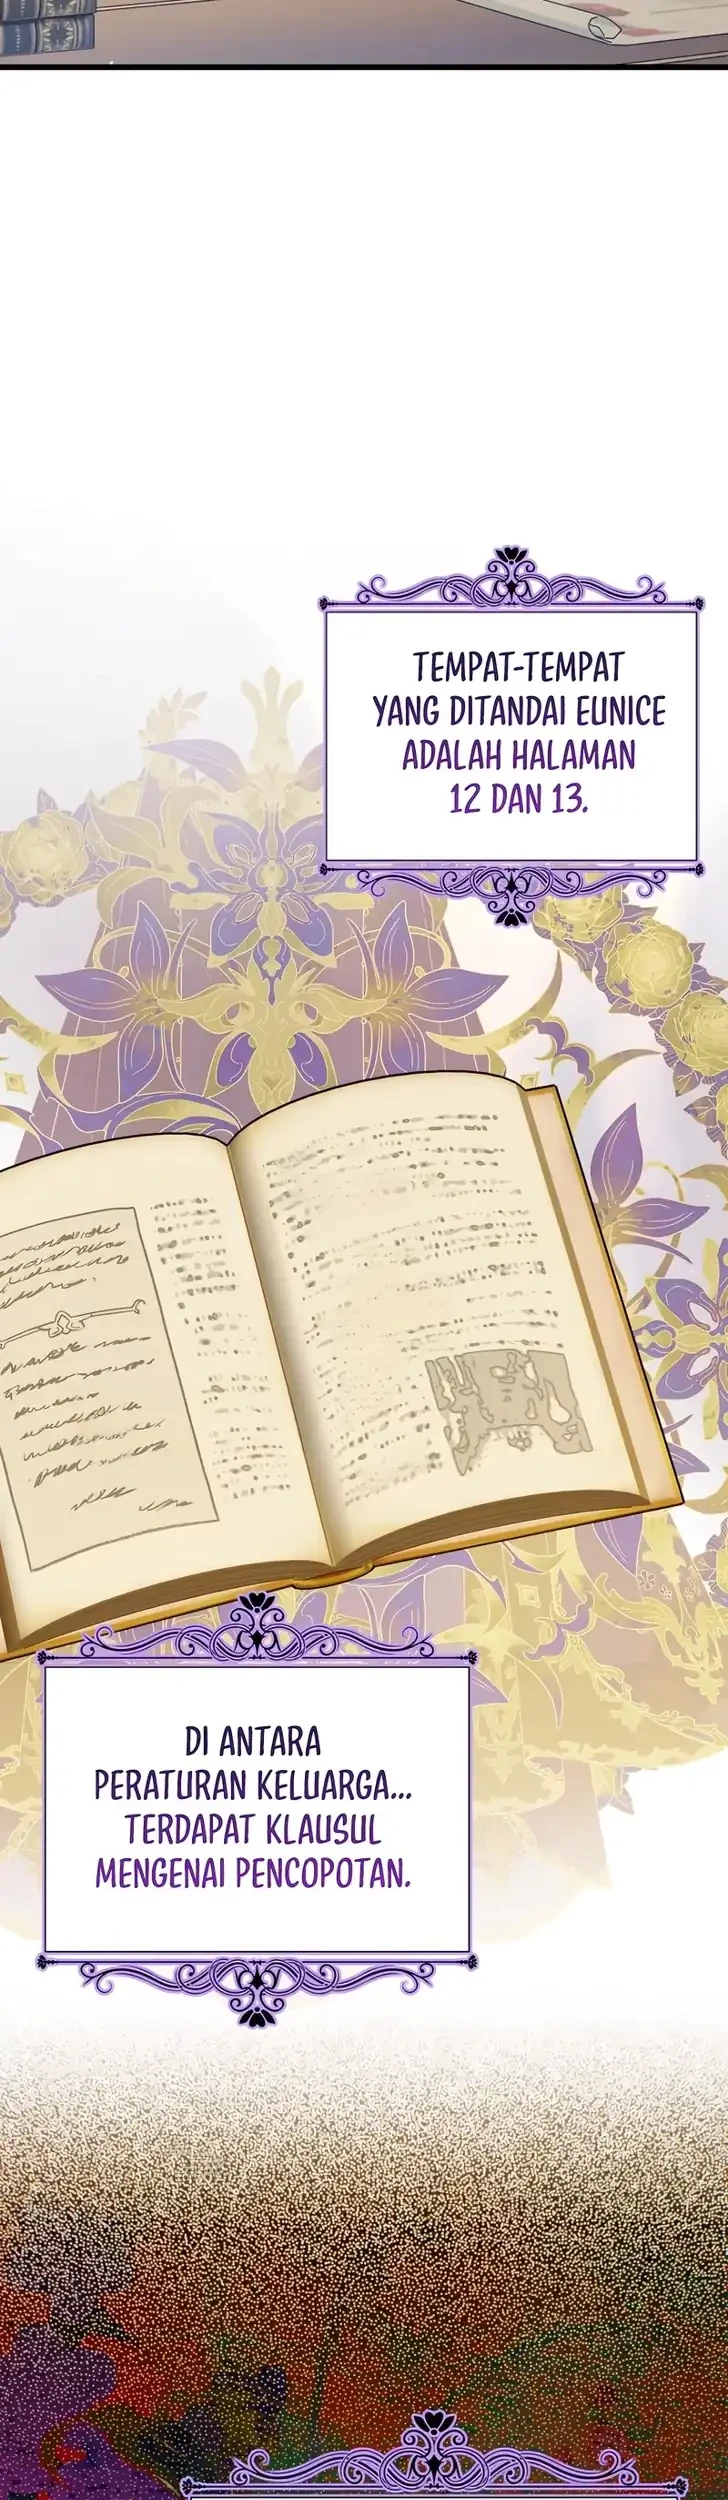 TEMPAT-TEMPAT
YANG DITANDAI EUNICE
ADALAH HALAMAN
12 DAN 13.
DI ANTARA
PERATURAN KELUARGA...
TERDAPAT KLAUSUL
MENGENAI PENCOPOTAN.